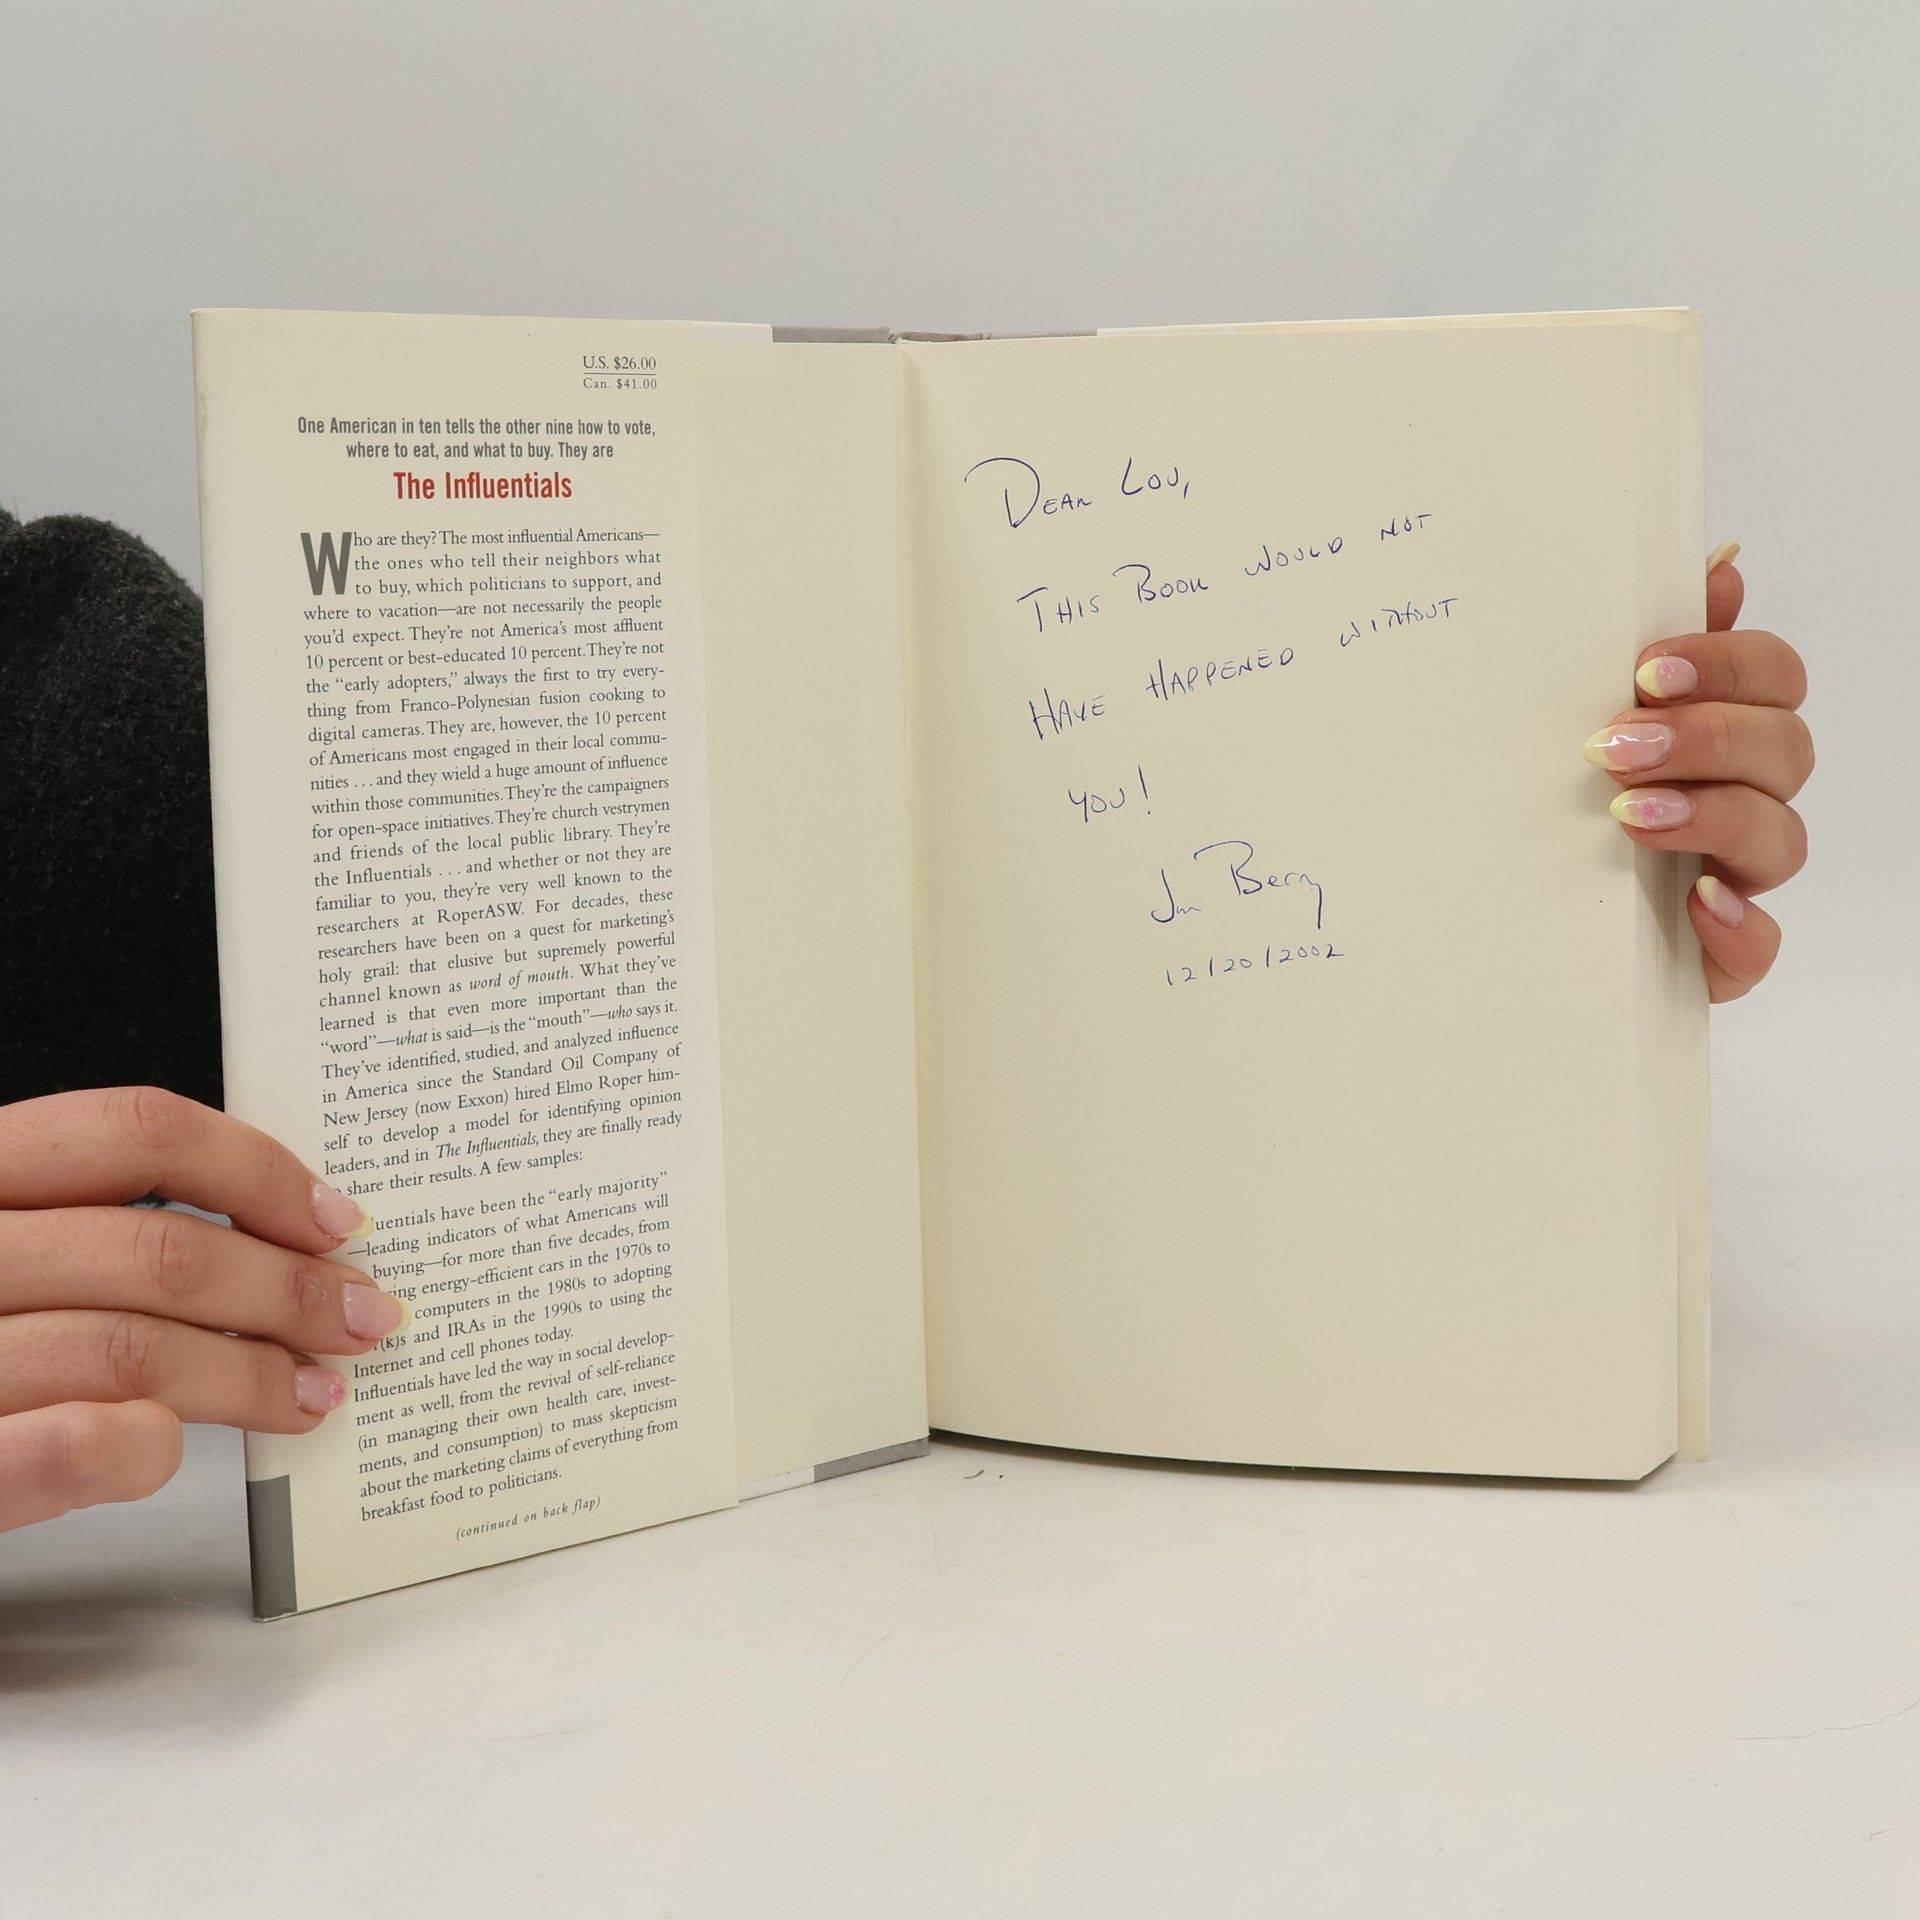 U.S. $26.00
Can. $41.00
One American in ten tells the other nine how to vote,
where to eat, and what to buy. They are
The Influentials
Who are they? The most influential Americans—
the ones who tell their neighbors what
to buy, which politicians to support, and
where to vacation—are not necessarily the people
you'd expect. They're not America's most affluent
10 percent or best-educated 10 percent. They're not
the "early adopters," always the first to try every-
thing from Franco-Polynesian fusion cooking to
digital cameras. They are, however, the 10 percent
of Americans most engaged in their local commu-
nities . . . and they wield a huge amount of influence
within those communities. They're the campaigners
for open-space initiatives. They're church vestrymen
and friends of the local public library. They're
the Influentials . . . and whether or not they are
familiar to you, they're very well known to the
researchers at RoperASW. For decades, these
researchers have been on a quest for marketing's
holy grail: that elusive but supremely powerful
channel known as word of mouth. What they've
learned is that even more important than the
"word"—what is said—is the "mouth"—who says it.
They've identified, studied, and analyzed influence
in America since the Standard Oil Company of
New Jersey (now Exxon) hired Elmo Roper him-
self to develop a model for identifying opinion
leaders, and in The Influentials, they are finally ready
share their results. A few samples:
uentials have been the "early majority"
—leading indicators of what Americans will
buying—for more than five decades, from
ing energy-efficient cars in the 1970s to
computers in the 1980s to adopting
(k)s and IRAs in the 1990s to using the
Internet and cell phones today.
Influentials have led the way in social develop-
ment as well, from the revival of self-reliance
(in managing their own health care, invest-
ments, and consumption) to mass skepticism
about the marketing claims of everything from
breakfast food to politicians.
(continued on back flap)
DEAR LOU,
THIS BOOK WOULD NOT
HAVE HAPPENED WITHOUT
YOU!
Jon Berry
12/20/2002